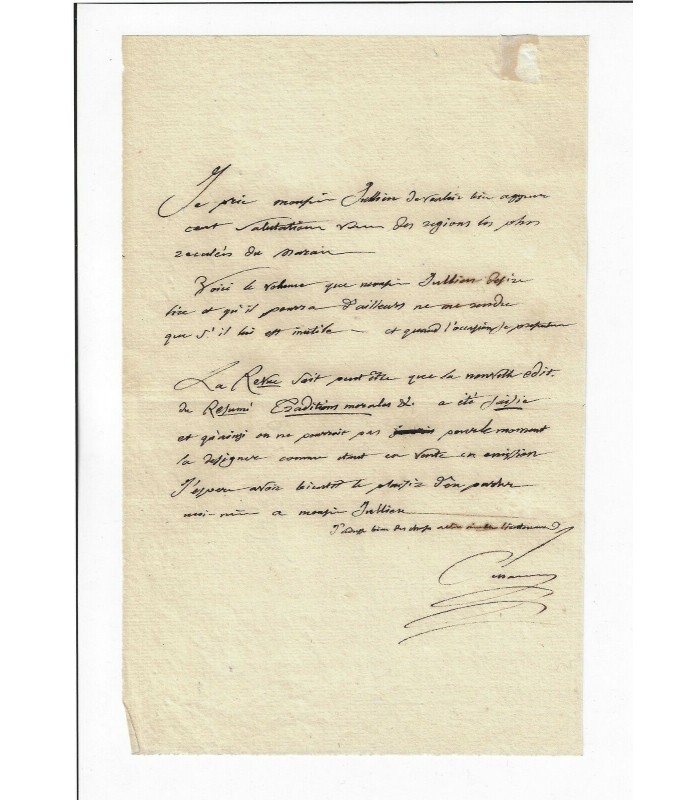 Je prie monsieur Jullien de vouloir bien
cent salutations des regions les plus
reculées du marais
Voici le volume que monsieur Jullien desire
lire et qu'il pourra d'ailleurs ne me rendre
que s'il lui est inutile — et quand l'occasion se
La Revue sait peut être que la nouvelle edit.
du Resumé Traditions morales &. a été saisie
et qu'ainsi on ne pourroit pas pour le moment
la designer comme étant en vente en emission
J'espere avoir bientot le plaisir d'en parler
moi-mème a monsieur Jullien